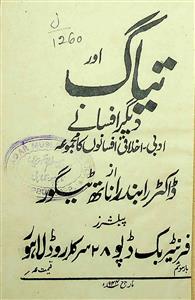 ل
1260
تیاگ
اور
دیگر افسانے
ادبی۔ اخلاقی افسانوں کا مجموعہ
از
ڈاکٹر رابندر اناتھ ٹیگور
پبلشرز
فرنٹیر بک ڈپو ۲۸ سرکلر روڈ لاہور
بار سوم
قیمت
مارچ